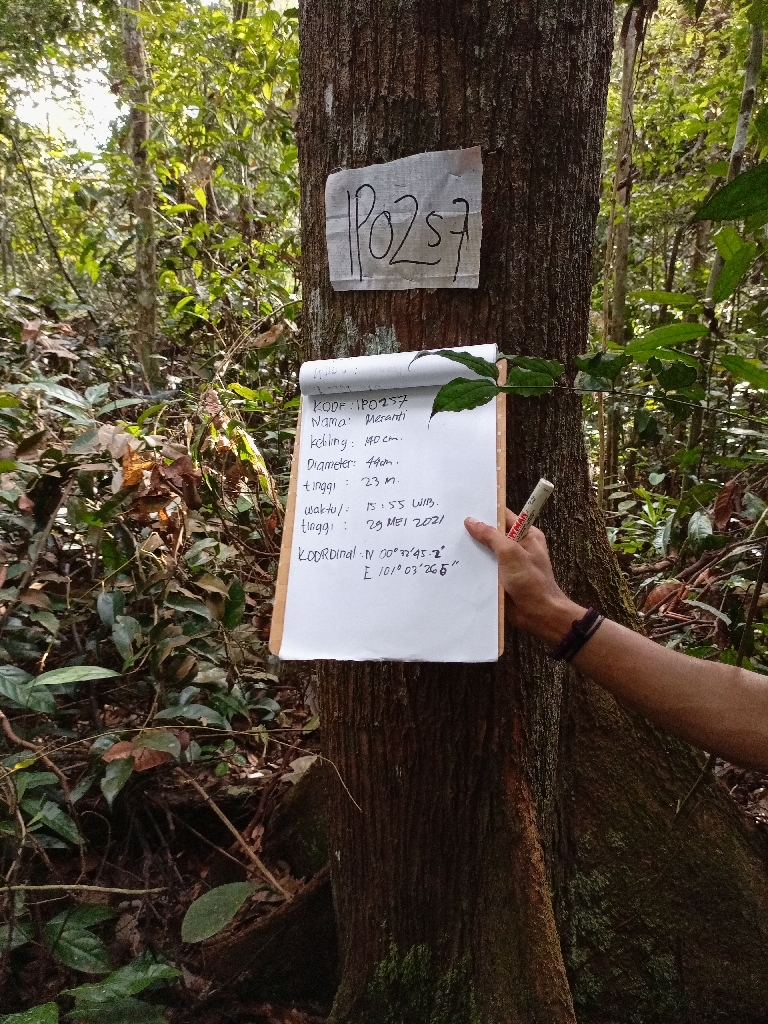 IPO257
KODE : IPO257
Nama : Meranti
keliling : 140 cm.
Diameter : 44 cm.
tinggi : 23 m.
waktu : 15:55 WIB.
tinggi : 29 MEI 2021
KOORDinat : N 00° 32' 45.2"
E 101° 03' 26.5"